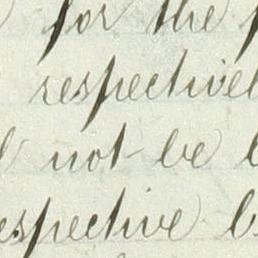 for the
respectivel
not be
espective